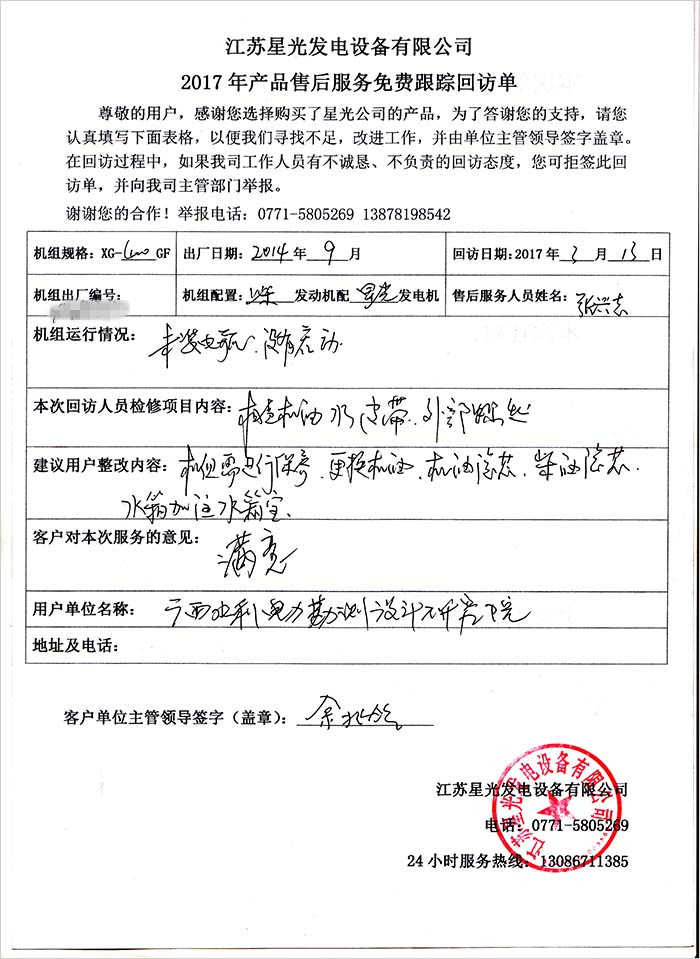 江苏星光发电设备有限公司
2017年产品售后服务免费跟踪回访单
尊敬的用户，感谢您选择购买了星光公司的产品，为了答谢您的支持，请您
认真填写下面表格，以便我们寻找不足，改进工作，并由单位主管领导签字盖章。
在回访过程中，如果我司工作人员有不诚恳、不负责的回访态度，您可拒签此回
访单，并向我司主管部门举报。
谢谢您的合作！举报电话：0771-5805269 13878198542
机组规格：XG- GF 出厂日期：2014年 9 月 回访日期：2017年 3 月 13 日
机组出厂编号： 机组配置： 发动机配 星光 发电机 售后服务人员姓名：张兴志
机组运行情况：未装电瓶、没有启动
本次回访人员检修项目内容：检查机油 水 皮带、外部
建议用户整改内容：机组需进行保养、更换机油、机油滤芯、柴油滤芯、
水箱加注水箱宝、
客户对本次服务的意见：满意
用户单位名称：广西水利电力勘测设计研究院
地址及电话：
客户单位主管领导签字（盖章）：余
江苏星光发电设备有限公司
江苏星光发电设备有限公司
电话：0771-5805269
24小时服务热线：13086711385